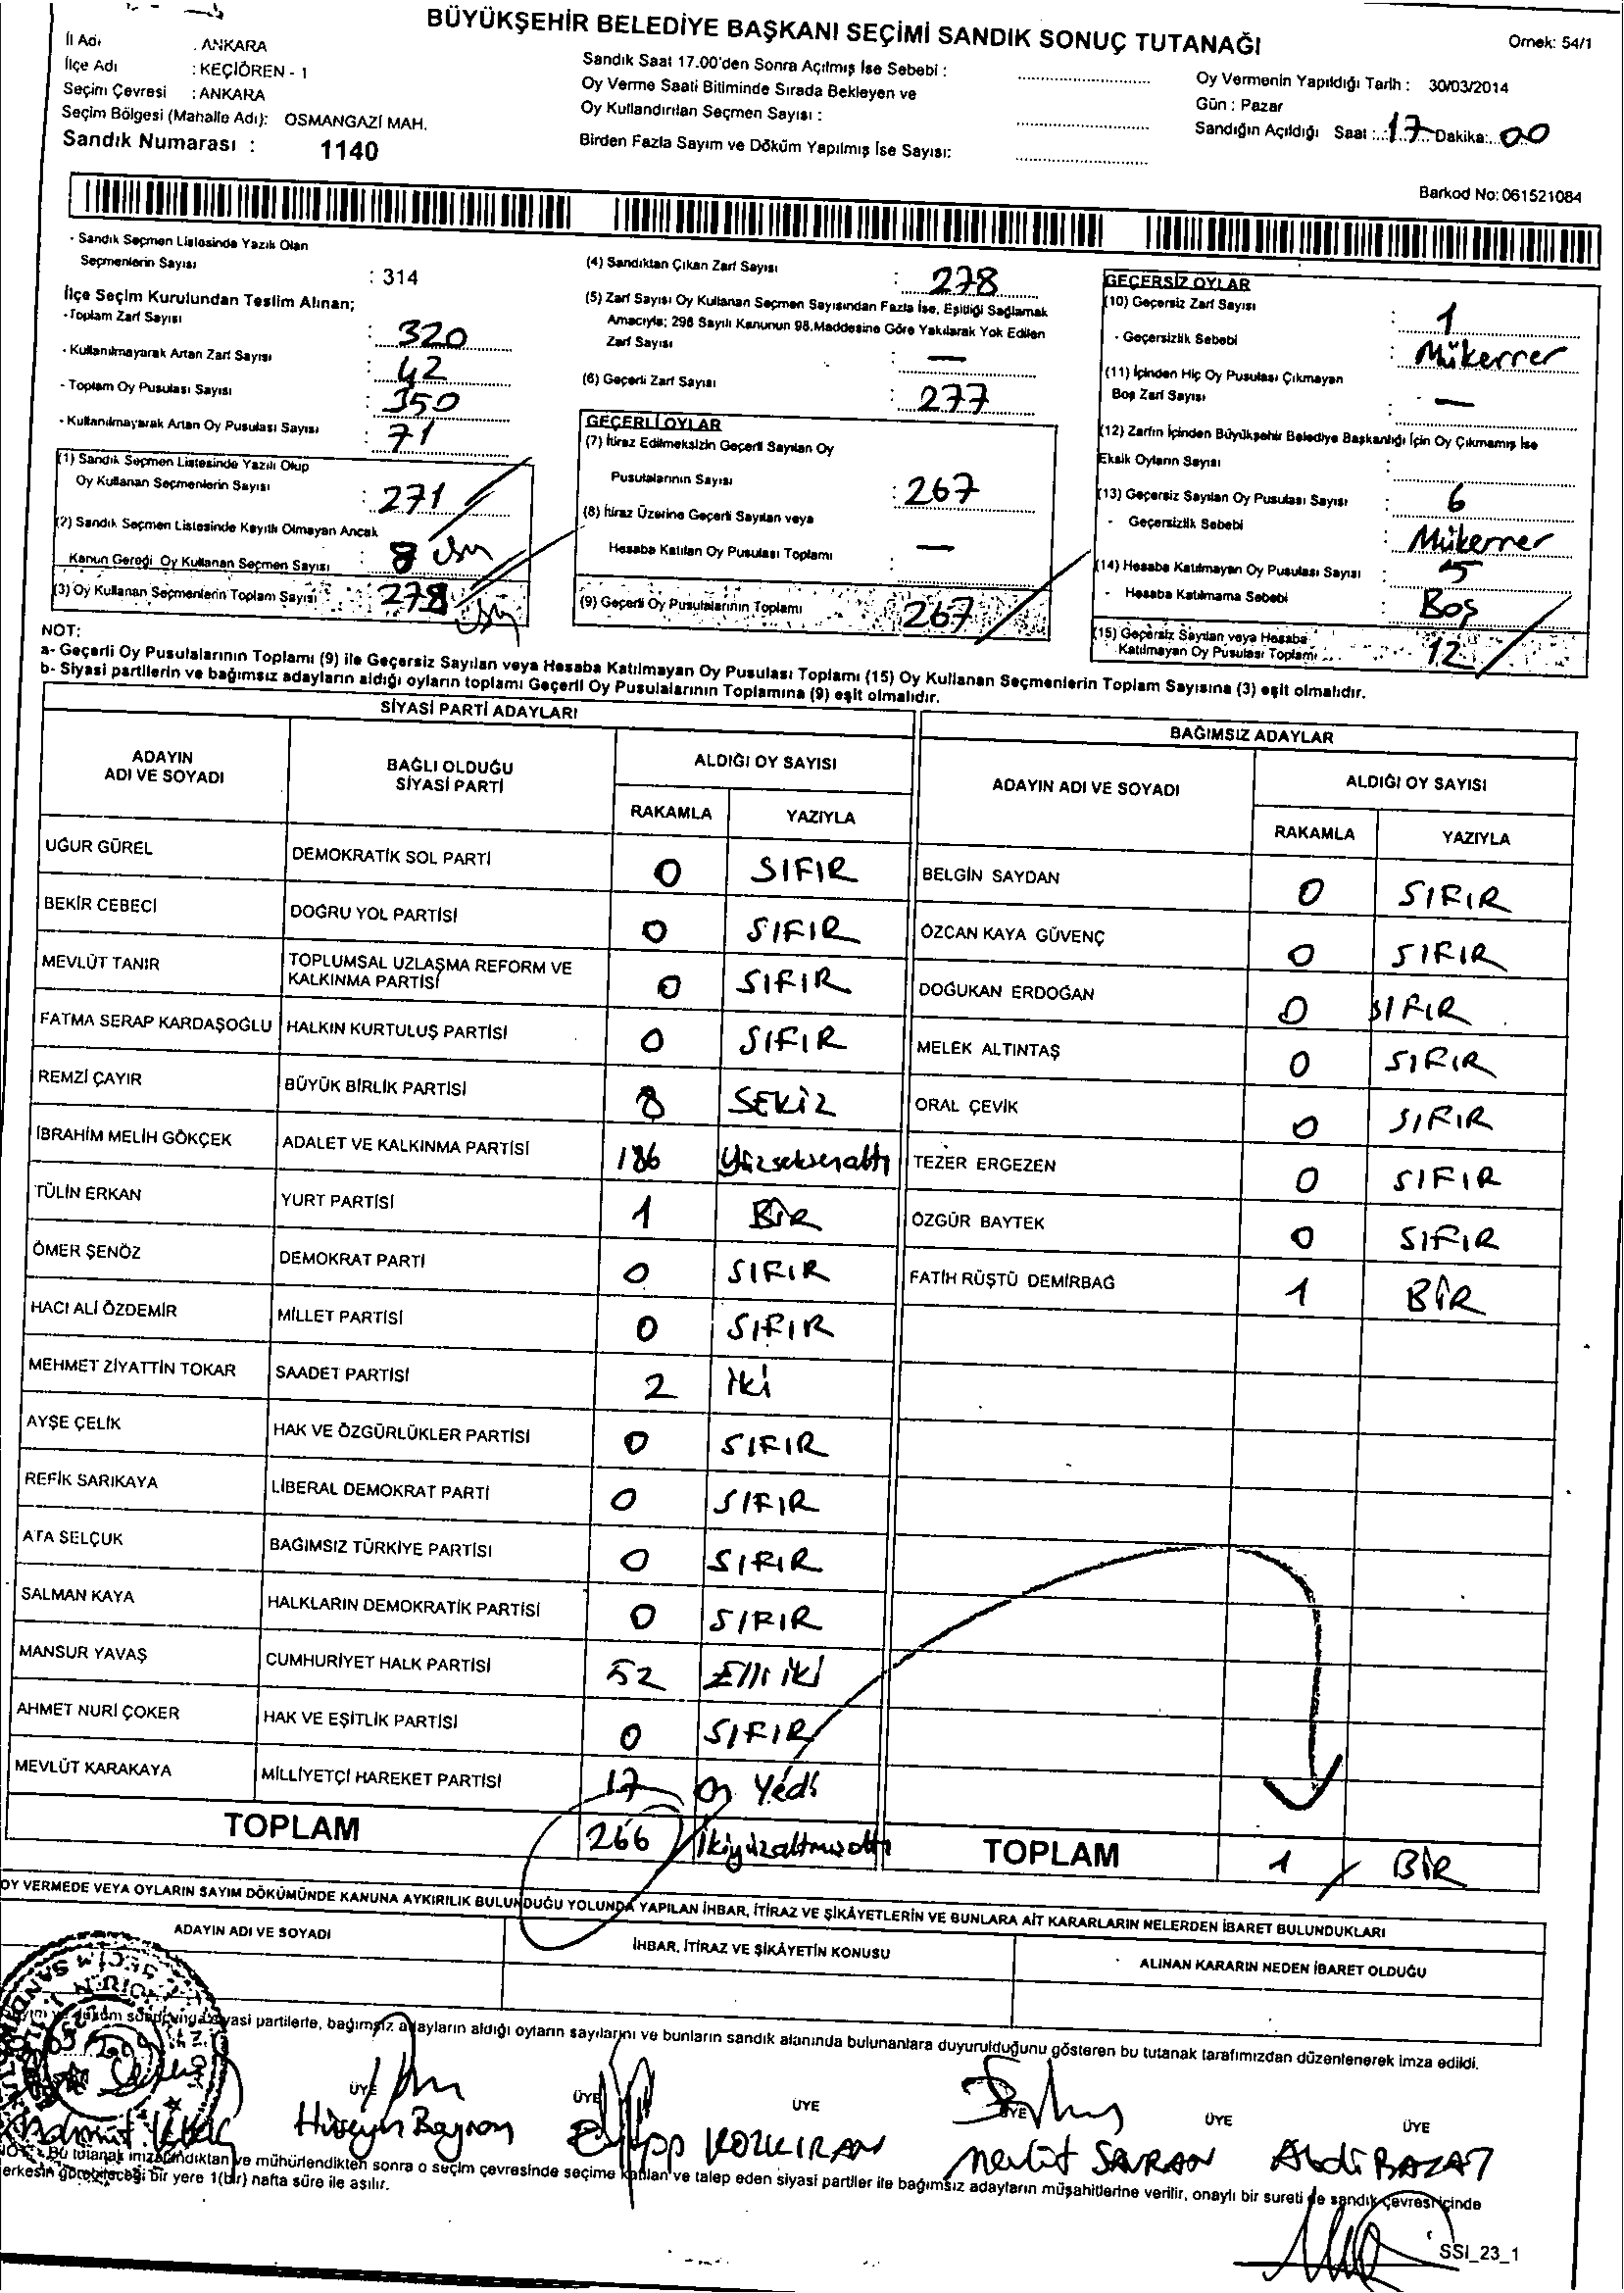 BÜYÜKŞEHİR BELEDİYE BAŞKANI SEÇİMİ SANDIK SONUÇ TUTANAĞI
Örnek: 54/1
İl Adı : ANKARA
İlçe Adı : KEÇİÖREN - 1
Seçim Çevresi : ANKARA
Seçim Bölgesi (Mahalle Adı): OSMANGAZİ MAH.
Sandık Numarası : 1140
Sandık Saat 17.00'den Sonra Açılmış İse Sebebi :
Oy Verme Saati Bitiminde Sırada Bekleyen ve
Oy Kullandırılan Seçmen Sayısı :
Birden Fazla Sayım ve Döküm Yapılmış İse Sayısı:
Oy Vermenin Yapıldığı Tarih : 30/03/2014
Gün : Pazar
Sandığın Açıldığı Saat : 17 Dakika: 00
Barkod No: 061521084
- Sandık Seçmen Listesinde Yazılı Olan
Seçmenlerin Sayısı : 314
İlçe Seçim Kurulundan Teslim Alınan;
- Toplam Zarf Sayısı : 320
- Kullanılmayarak Artan Zarf Sayısı : 42
- Toplam Oy Pusulası Sayısı : 350
- Kullanılmayarak Artan Oy Pusulası Sayısı : 71
(1) Sandık Seçmen Listesinde Yazılı Olup
Oy Kullanan Seçmenlerin Sayısı : 271
(2) Sandık Seçmen Listesinde Kayıtlı Olmayan Ancak
Kanun Gereği Oy Kullanan Seçmen Sayısı : 8
(3) Oy Kullanan Seçmenlerin Toplam Sayısı : 278
(4) Sandıktan Çıkan Zarf Sayısı : 278
(5) Zarf Sayısı Oy Kullanan Seçmen Sayısından Fazla İse, Eşitliği Sağlamak
Amacıyla; 298 Sayılı Kanunun 98.Maddesine Göre Yakılarak Yok Edilen
Zarf Sayısı : —
(6) Geçerli Zarf Sayısı : 277
GEÇERLİ OYLAR
(7) İtiraz Edilmeksizin Geçerli Sayılan Oy
Pusulalarının Sayısı : 267
(8) İtiraz Üzerine Geçerli Sayılan veya
Hesaba Katılan Oy Pusulası Toplamı : —
(9) Geçerli Oy Pusulalarının Toplamı : 267
GEÇERSİZ OYLAR
(10) Geçersiz Zarf Sayısı : 1
- Geçersizlik Sebebi : Mükerrer
(11) İçinden Hiç Oy Pusulası Çıkmayan
Boş Zarf Sayısı : —
(12) Zarfın İçinden Büyükşehir Belediye Başkanlığı İçin Oy Çıkmamış İse
Eksik Oyların Sayısı :
(13) Geçersiz Sayılan Oy Pusulası Sayısı : 6
- Geçersizlik Sebebi : Mükerrer
(14) Hesaba Katılmayan Oy Pusulası Sayısı : 5
- Hesaba Katılmama Sebebi : Boş
(15) Geçersiz Sayılan veya Hesaba
Katılmayan Oy Pusulası Toplamı : 12
NOT:
a- Geçerli Oy Pusulalarının Toplamı (9) ile Geçersiz Sayılan veya Hesaba Katılmayan Oy Pusulası Toplamı (15) Oy Kullanan Seçmenlerin Toplam Sayısına (3) eşit olmalıdır.
b- Siyasi partilerin ve bağımsız adayların aldığı oyların toplamı Geçerli Oy Pusulalarının Toplamına (9) eşit olmalıdır.
SİYASİ PARTİ ADAYLARI
ADAYIN ADI VE SOYADI BAĞLI OLDUĞU SİYASİ PARTİ ALDIĞI OY SAYISI
RAKAMLA YAZIYLA
UĞUR GÜREL DEMOKRATİK SOL PARTİ 0 SIFIR
BEKİR CEBECİ DOĞRU YOL PARTİSİ 0 SIFIR
MEVLÜT TANIR TOPLUMSAL UZLAŞMA REFORM VE KALKINMA PARTİSİ 0 SIFIR
FATMA SERAP KARDAŞOĞLU HALKIN KURTULUŞ PARTİSİ 0 SIFIR
REMZİ ÇAYIR BÜYÜK BİRLİK PARTİSİ 8 SEKİZ
İBRAHİM MELİH GÖKÇEK ADALET VE KALKINMA PARTİSİ 186 Yüzseksenaltı
TÜLİN ERKAN YURT PARTİSİ 1 BİR
ÖMER ŞENÖZ DEMOKRAT PARTİ 0 SIFIR
HACI ALİ ÖZDEMİR MİLLET PARTİSİ 0 SIFIR
MEHMET ZİYATTİN TOKAR SAADET PARTİSİ 2 iki
AYŞE ÇELİK HAK VE ÖZGÜRLÜKLER PARTİSİ 0 SIFIR
REFİK SARIKAYA LİBERAL DEMOKRAT PARTİ 0 SIFIR
ATA SELÇUK BAĞIMSIZ TÜRKİYE PARTİSİ 0 SIFIR
SALMAN KAYA HALKLARIN DEMOKRATİK PARTİSİ 0 SIFIR
MANSUR YAVAŞ CUMHURİYET HALK PARTİSİ 52 Elli iki
AHMET NURİ ÇOKER HAK VE EŞİTLİK PARTİSİ 0 SIFIR
MEVLÜT KARAKAYA MİLLİYETÇİ HAREKET PARTİSİ 17 On Yedi
TOPLAM 266 İkiyüzaltmışaltı
BAĞIMSIZ ADAYLAR
ADAYIN ADI VE SOYADI ALDIĞI OY SAYISI
RAKAMLA YAZIYLA
BELGİN SAYDAN 0 SIFIR
ÖZCAN KAYA GÜVENÇ 0 SIFIR
DOĞUKAN ERDOĞAN 0 SIFIR
MELEK ALTINTAŞ 0 SIFIR
ORAL ÇEVİK 0 SIFIR
TEZER ERGEZEN 0 SIFIR
ÖZGÜR BAYTEK 0 SIFIR
FATİH RÜŞTÜ DEMİRBAĞ 1 BİR
TOPLAM 1 BİR
OY VERMEDE VEYA OYLARIN SAYIM DÖKÜMÜNDE KANUNA AYKIRILIK BULUNDUĞU YOLUNDA YAPILAN İHBAR, İTİRAZ VE ŞİKÂYETLERİN VE BUNLARA AİT KARARLARIN NELERDEN İBARET BULUNDUKLARI
ADAYIN ADI VE SOYADI İHBAR, İTİRAZ VE ŞİKÂYETİN KONUSU ALINAN KARARIN NEDEN İBARET OLDUĞU
siyasi partilerle, bağımsız adayların aldığı oyların sayılarını ve bunların sandık alanında bulunanlara duyurulduğunu gösteren bu tutanak tarafımızdan düzenlenerek imza edildi.
ÜYE ÜYE ÜYE ÜYE ÜYE ÜYE
Hüseyin Bayram Eyüp KOZKIRAN Mevlüt SARAN Abdi BAZAT
Bu tutanak imzalandıktan ve mühürlendikten sonra o seçim çevresinde seçime katılan ve talep eden siyasi partiler ile bağımsız adayların müşahitlerine verilir, onaylı bir sureti de sandık çevresi içinde
herkesin görebileceği bir yere 1(bir) hafta süre ile asılır.
SSI_23_1